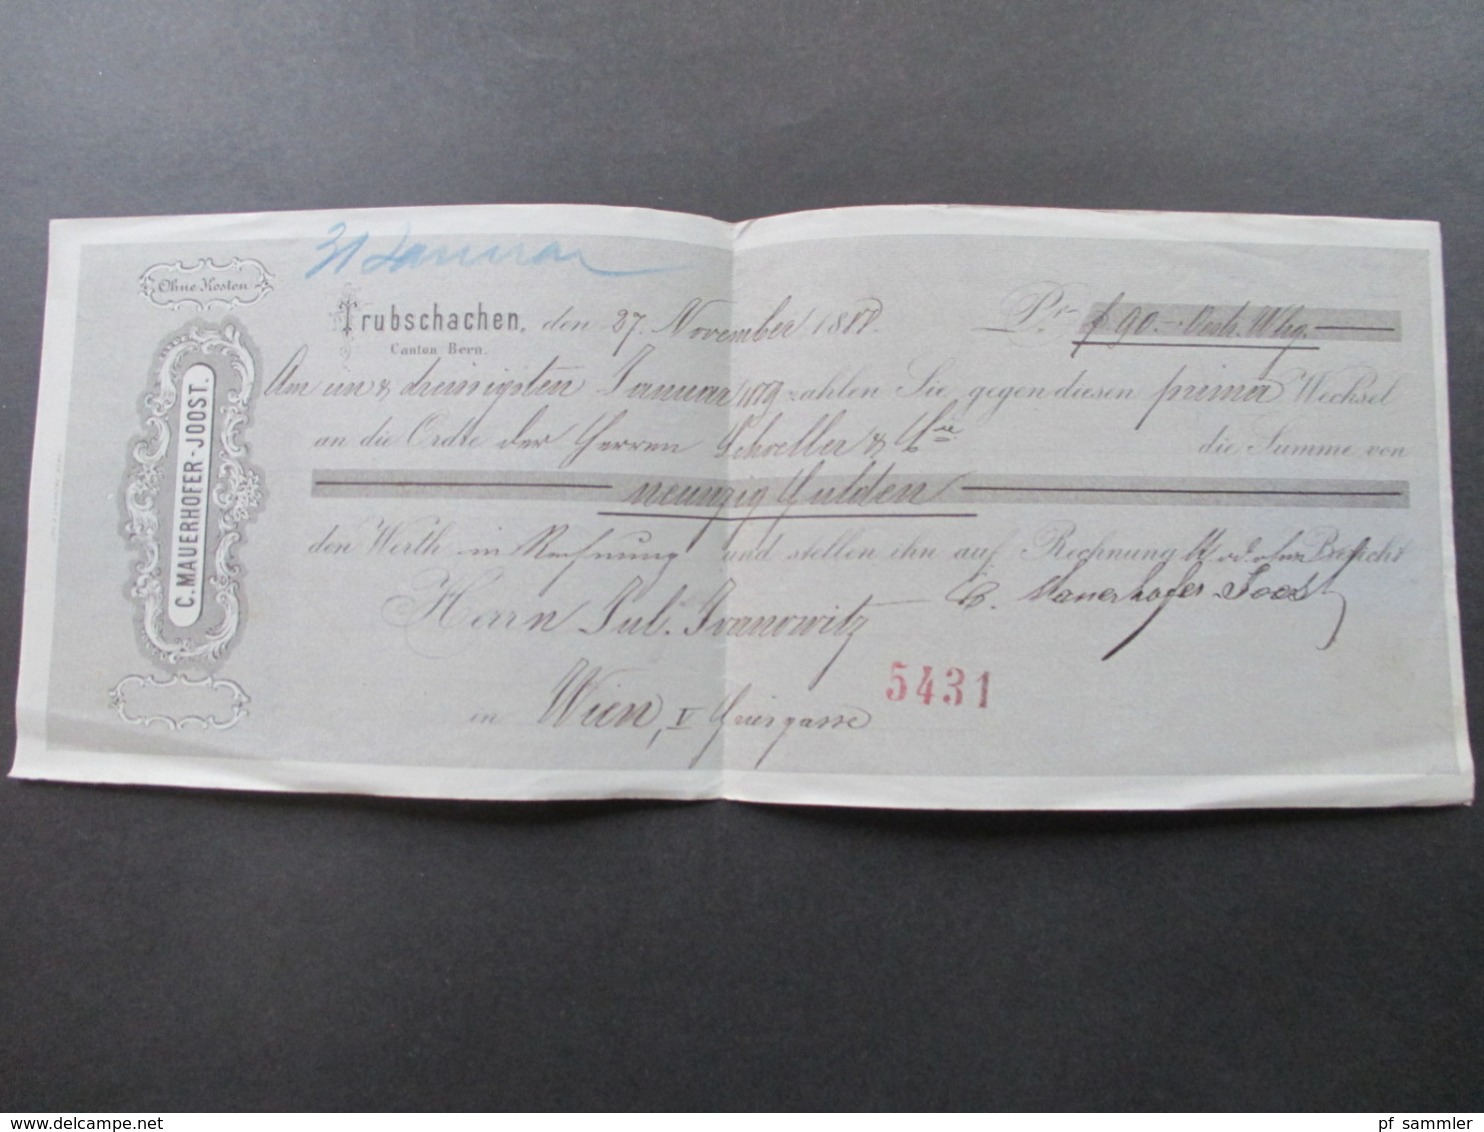 31 Januar
Ohne Kosten
C. MAUERHOFER-JOOST.
Trubschachen, den 27. November 18
Canton Bern.
Pr. f 90.- Oestr. Whg.
Am un & dreissigsten Januar 1879 zahlen Sie gegen diesen prima Wechsel
an die Ordre der Herren Schoeller & Cie die Summe von
neunzig Gulden
den Werth in Rechnung und stellen ihn auf Rechnung lt od. ohne Bericht
C. Mauerhofer-Joost
Herrn Jul. Ivanowitz
5431
in Wien, V Griesgasse
delcampe.net
pf_sammler